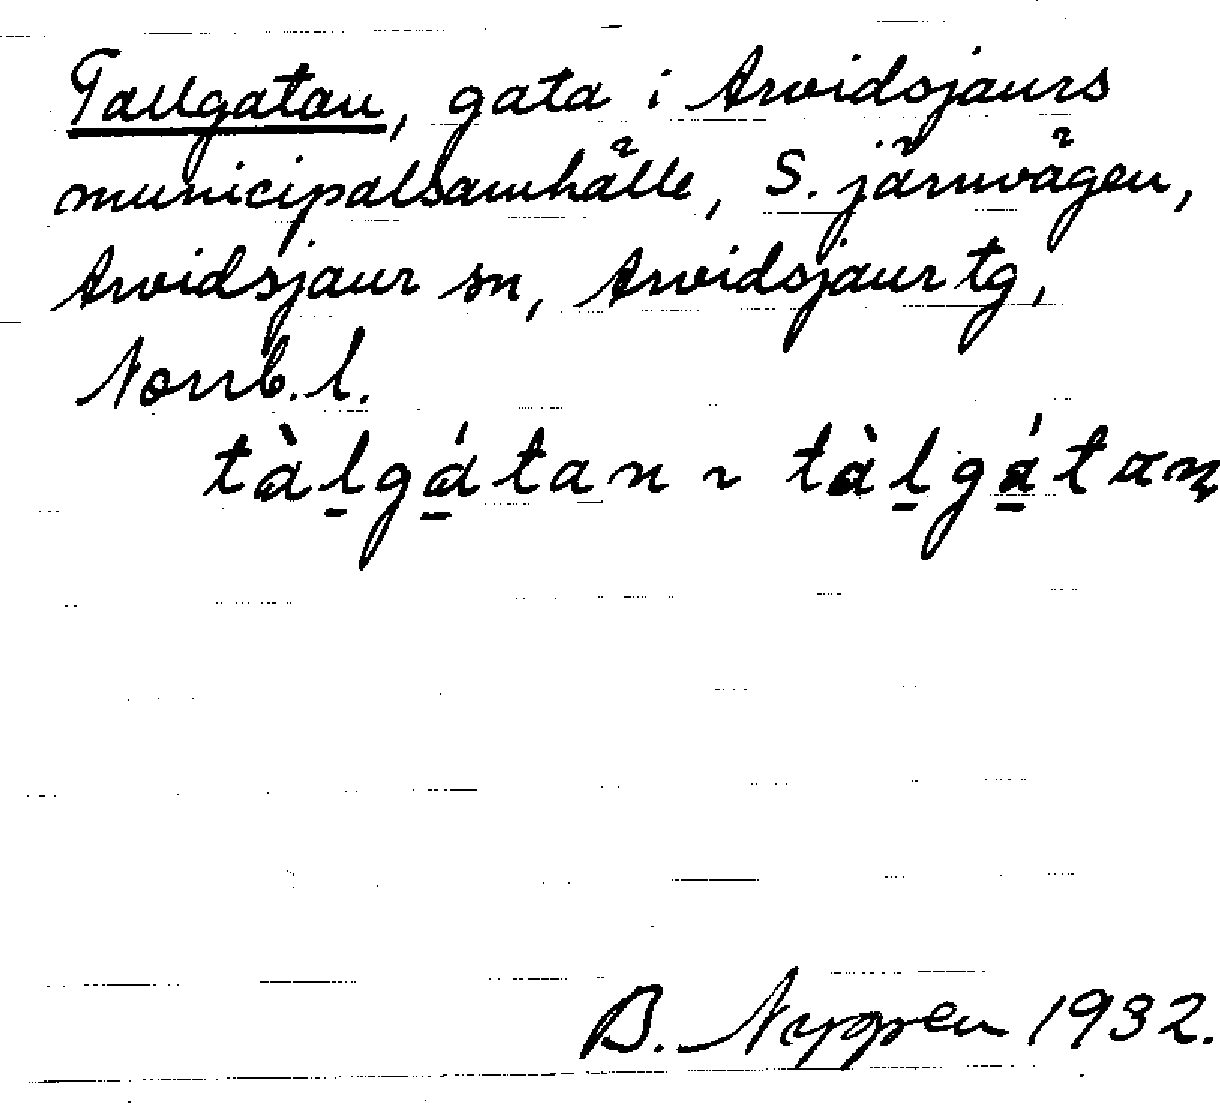 Tallgatan, gata i Arvidsjaurs
municipalsamhälle, S. järnvägen,
Arvidsjaur sn, Arvidsjaur tg,
Norrb. l.
tàl̠gá̠tan ~ tàl̠gá̠tαn̡
B. Nygren 1932.